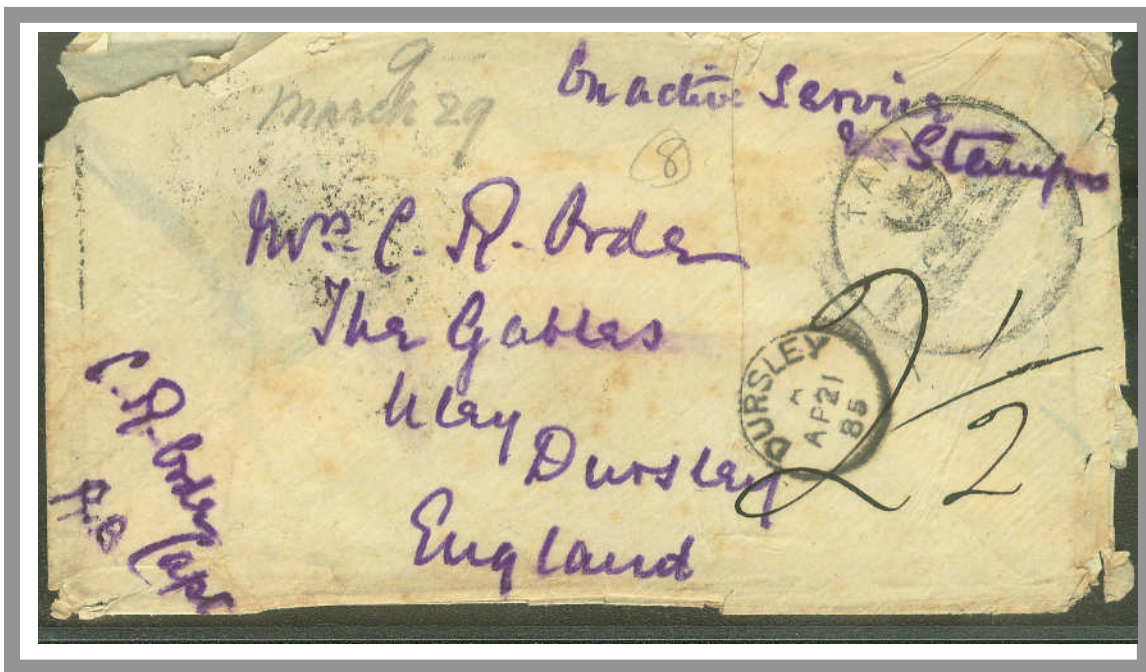 On active Service
& Stamps
9
March 29
8
Mrs. C. R. Orde
The Gables
Uley
Dursley
England
C. R. Orde Capt
DURSLEY
A
AP 21
85
2 1/2